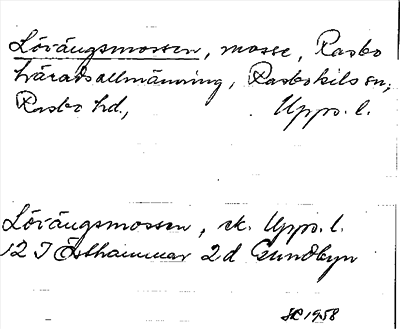 Lövängsmossen, mosse, Rasbo
häradsallmänning, Rasbokils sn,
Rasbo hd, Upps. l.
Lövängsmossen, ek. Upps. l.
12 I Östhammar 2 d Gundbyn
1958